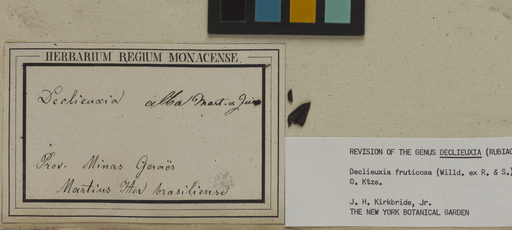 HERBARIUM REGIUM MONACENSE.
Declieuxia alba Mart. &
Prov. Minas Geraës
Martius Iter brasiliense
REVISION OF THE GENUS DECLIEUXIA (RUBIAC
Declieuxia fruticosa (Willd. ex R. & S.)
O. Ktze.
J. H. Kirkbride, Jr.
THE NEW YORK BOTANICAL GARDEN